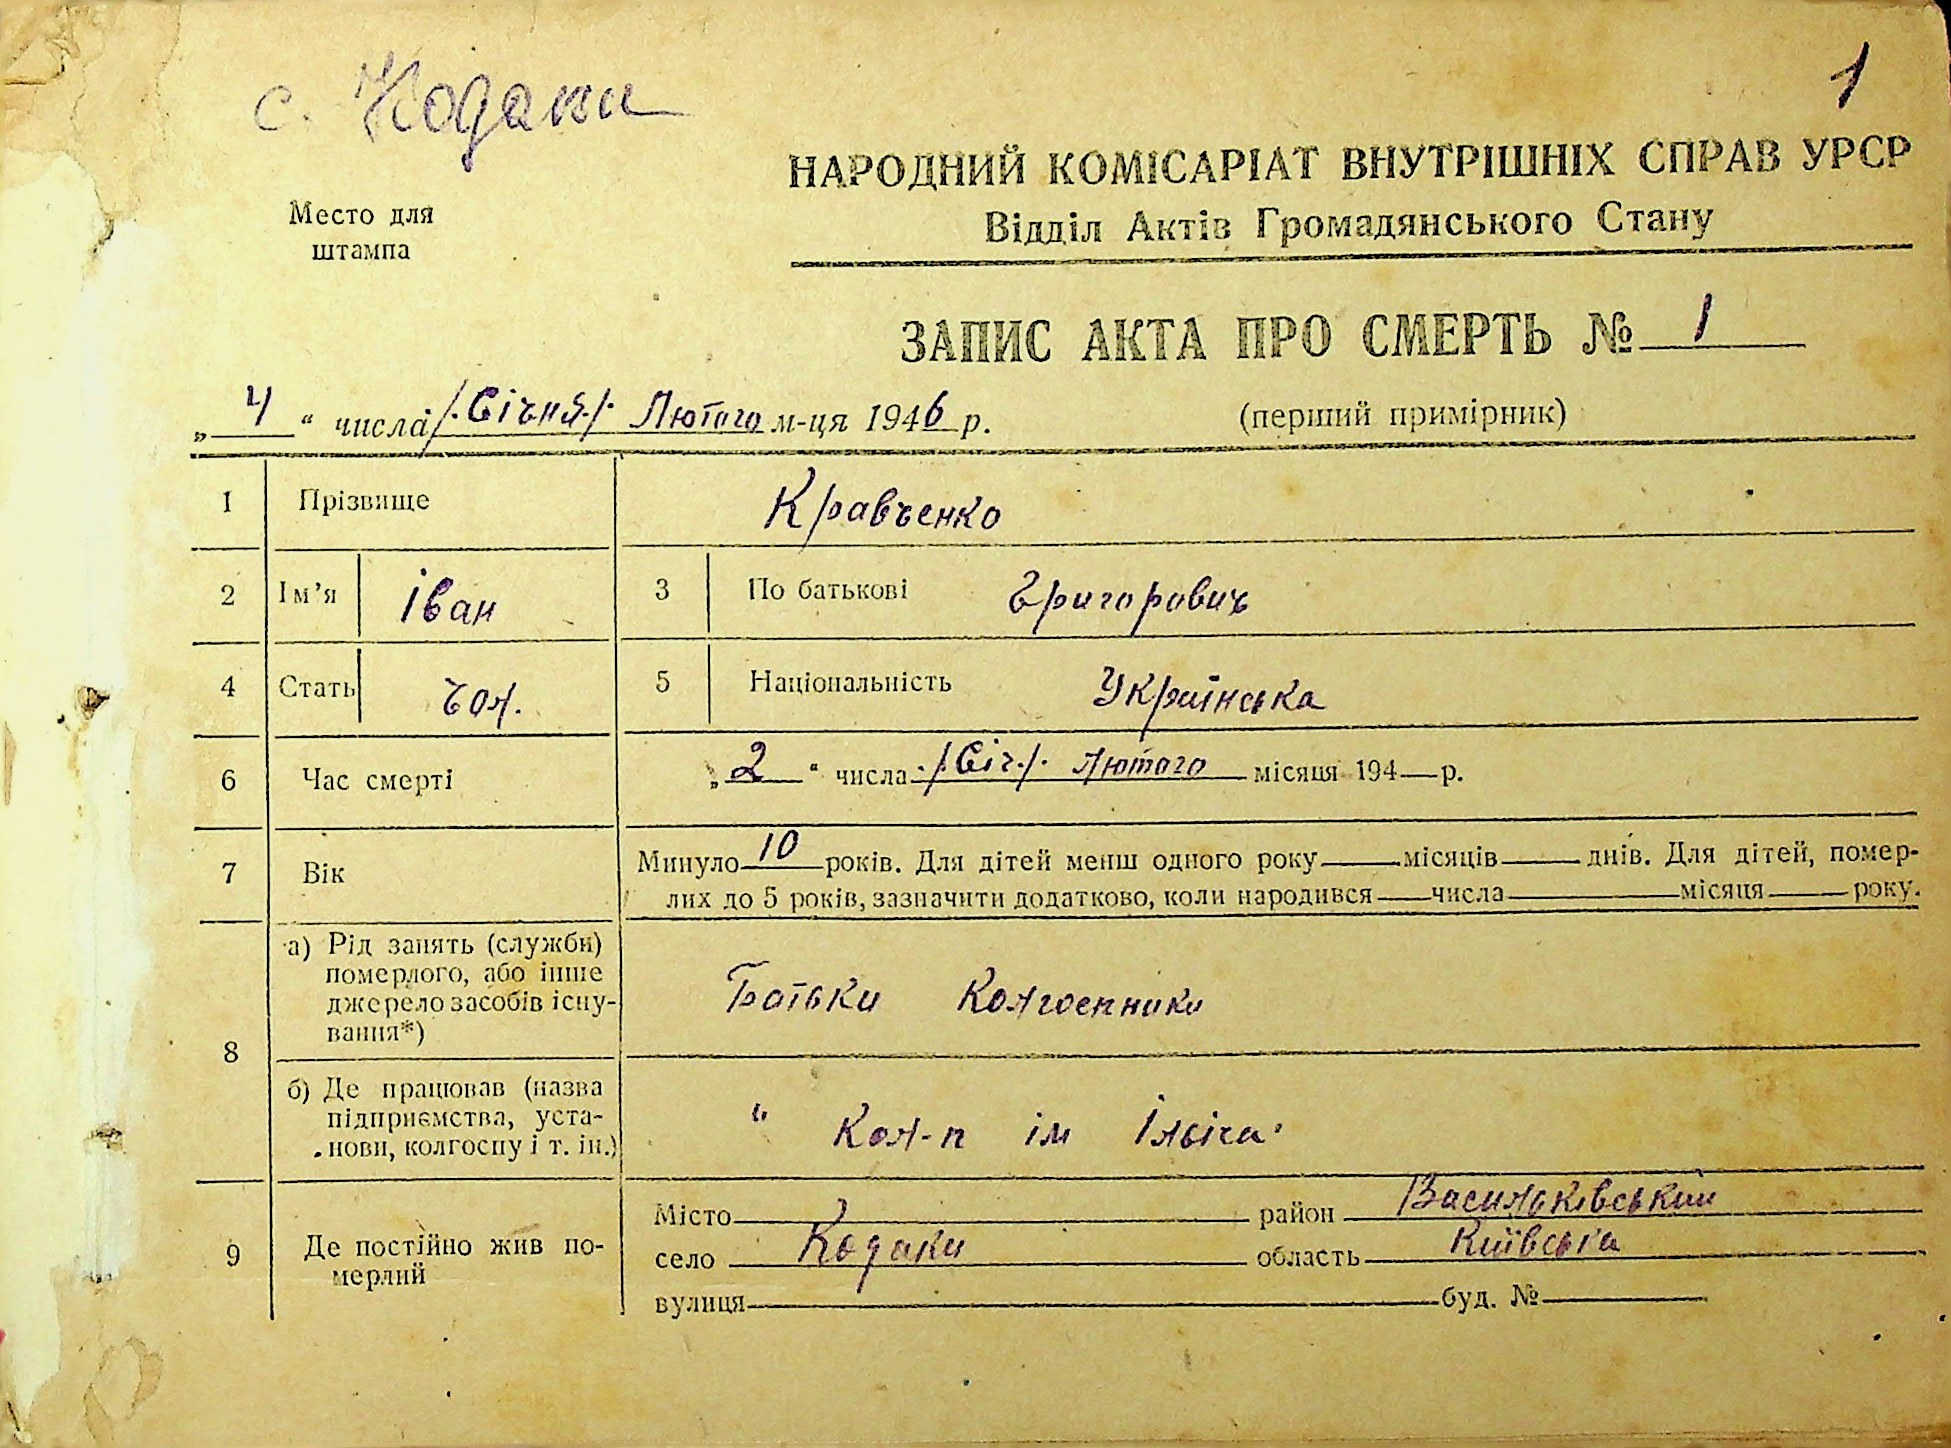 с. Кодаки
1
Место для
штампа
НАРОДНИЙ КОМІСАРІАТ ВНУТРІШНІХ СПРАВ УРСР
Відділ Актів Громадянського Стану
ЗАПИС АКТА ПРО СМЕРТЬ № 1
„ 4 “ числа /.Січня./. Лютого м-ця 1946 р.
(перший примірник)
1 Прізвище Кравченко
2 Ім’я Іван 3 По батькові Григорович
4 Стать чол. 5 Національність Українська
6 Час смерті „ 2 “ числа ./.Січ./. Лютого місяця 194— р.
7 Вік Минуло 10 років. Для дітей менш одного року — місяців — днів. Для дітей, помер-
лих до 5 років, зазначити додатково, коли народився — числа — місяця — року.
8 а) Рід занять (служби)
померлого, або інше
джерело засобів існу-
вання*)
Батьки Колгоспники
б) Де працював (назва
підприємства, уста-
нови, колгоспу і т. ін.)
“ Кол-п ім Ілліча
9 Де постійно жив по-
мерлий
Місто район Васильківський
село Кодаки область Київська
вулиця буд. №